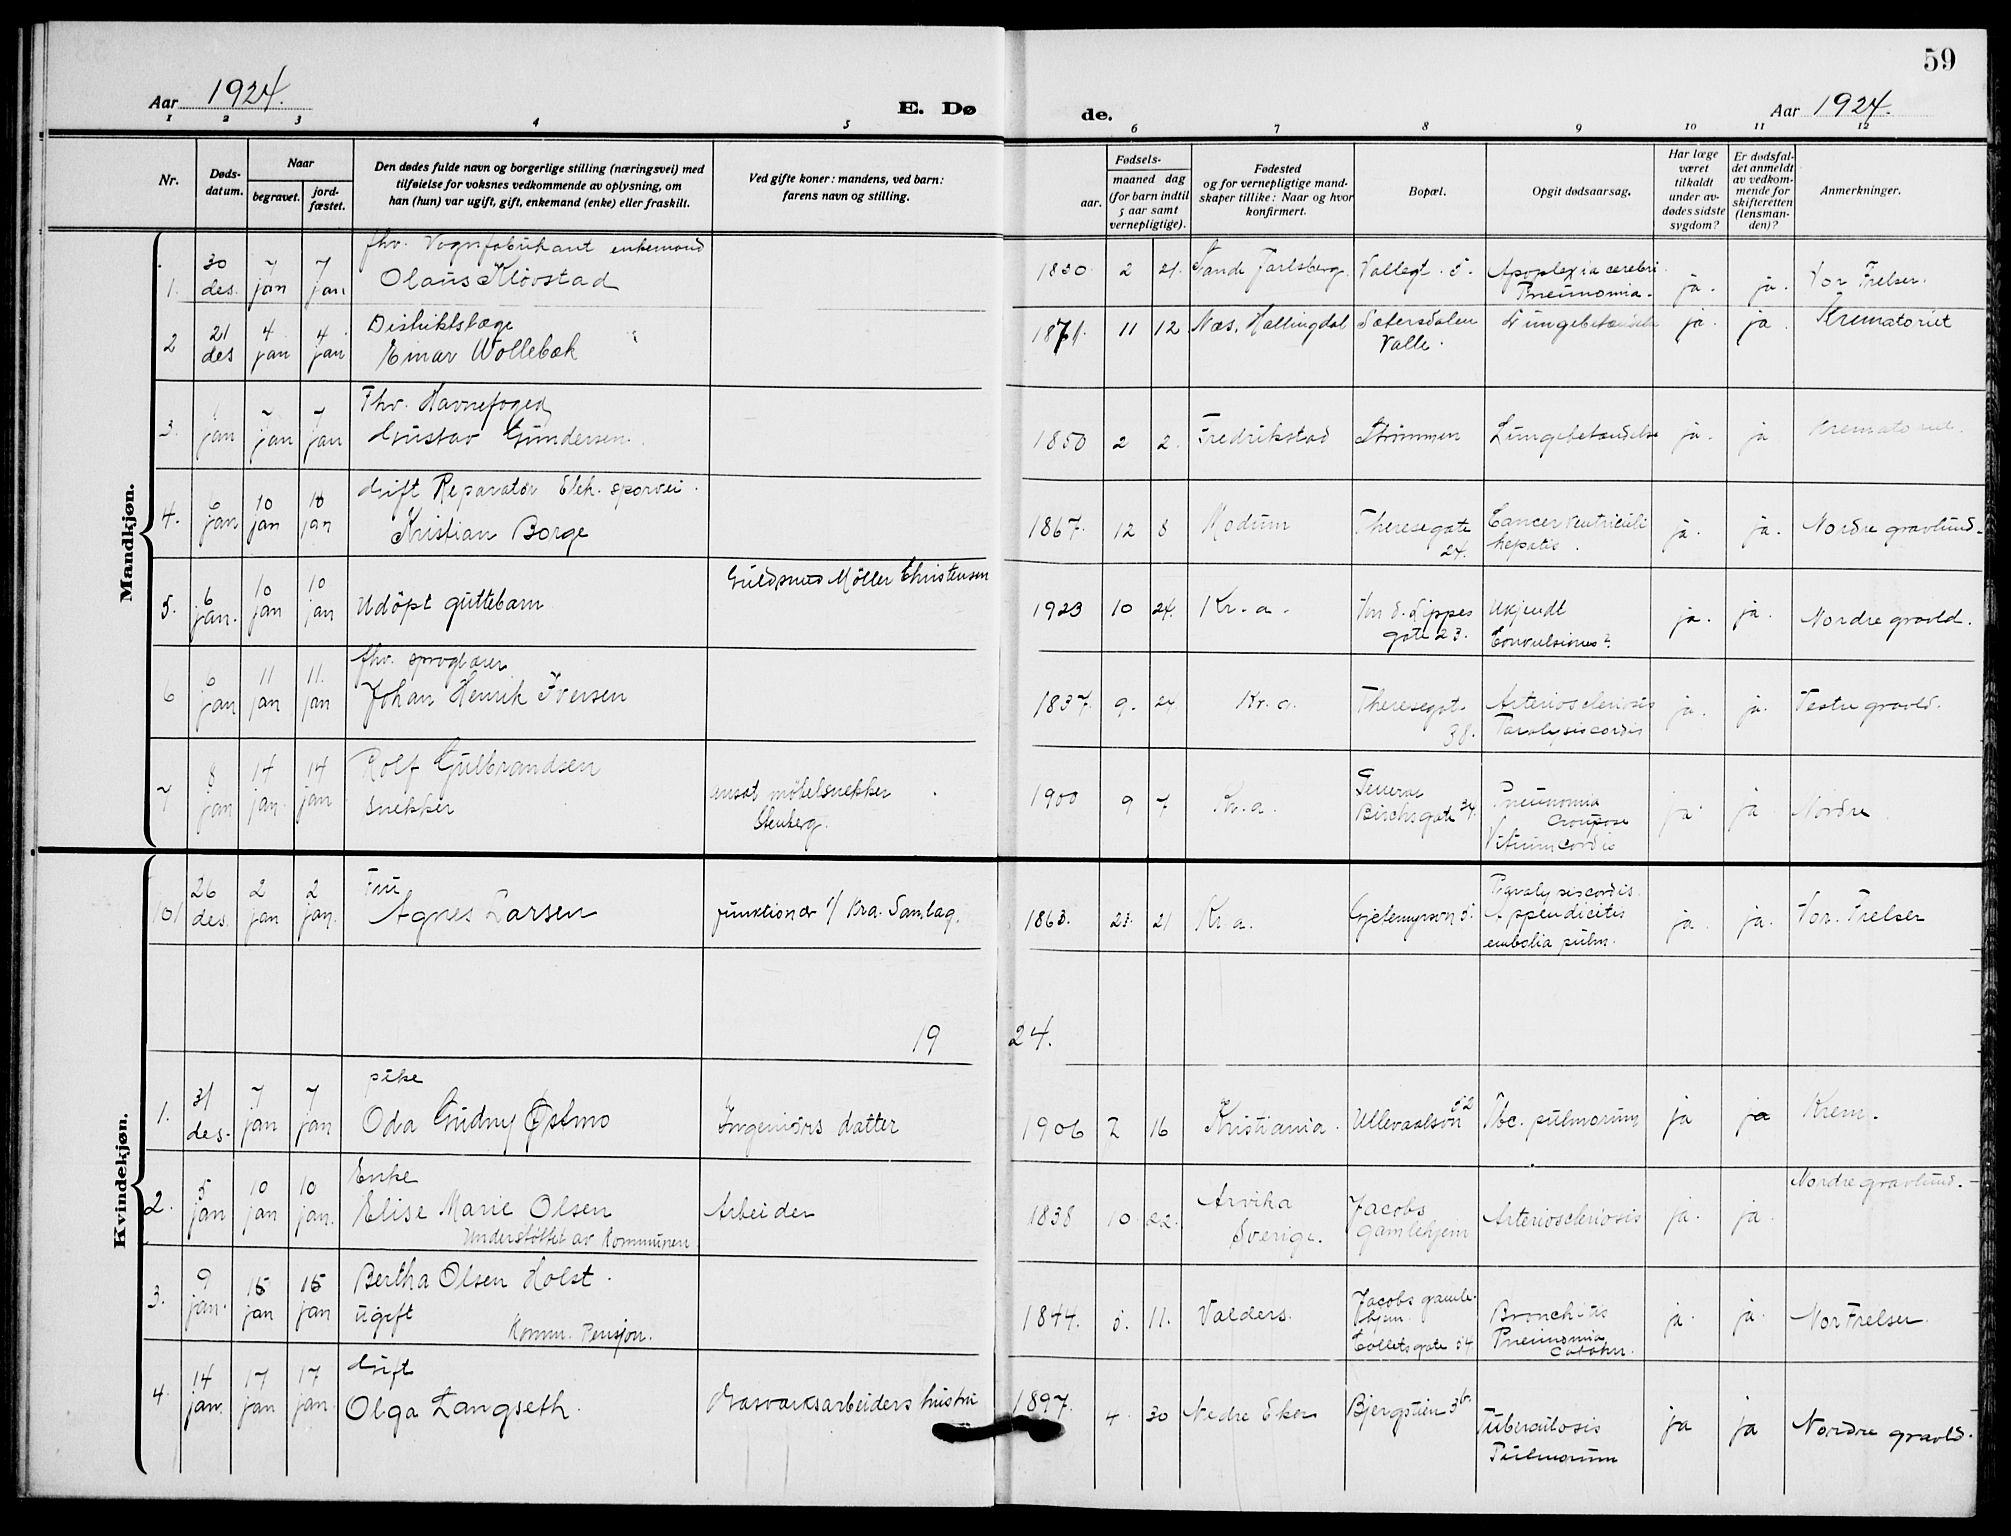 59
Aar 1924. E. Døde. Aar 1924.
1 2 3 4 5 6 7 8 9 10 11 12
Nr.
Døds-
datum.
Naar
begravet.
jord-
fæstet.
Den dødes fulde navn og borgerlige stilling (næringsvei) med
tilføielse for voksnes vedkommende av oplysning, om
han (hun) var ugift, gift, enkemand (enke) eller fraskilt.
Ved gifte koner: mandens, ved barn:
farens navn og stilling.
Fødsels-
aar.
maaned dag
(for barn indtil
5 aar samt
vernepligtige).
Fødested
og for vernepligtige mand-
skaper tillike: Naar og hvor
konfirmert.
Bopæl.
Opgit dødsaarsag.
Har læge
været
tilkaldt
under av-
dødes sidste
sygdom?
Er dødsfal-
det anmeldt
av vedkom-
mende for
skifteretten
(lensman-
den)?
Anmerkninger.
Mandkjøn.
1. 30 des. 7 jan 7 jan
fhv. Vognfabrikant enkemand
Olaus Kløvstad
1830. 2 21. Sande Jarlsberg. Vallegt. 5.
Apoplexia cerebri
Pneumonia.
ja. ja. Vor Frelser.
2 21 des 4 jan 4 jan
Distriktslæge
Einar Wollebæk
1871. 11 12 Næs, Hallingdal
Sætersdalen
Valle.
Lungebetændelse ja. ja. Krematoriet
3. jan 7 jan 7 jan
Fhv. Havnefoged
Gustav Gundersen.
1850 2 2. Fredrikstad Strømmen Lungebetændelse ja. ja Krematoriet.
4. 6 jan 10 jan 10 jan
Gift Reparatør Elek. sporvei.
Kristian Borge
1867. 12 8 Modum
Theresegate
24.
Cancer ventriculi
hepatis.
ja. ja. Nordre gravlund.
5. 6 jan. 10 jan 10 jan
Udöpt guttebarn
Guldsmed Møller Christensen
1923 10 24. Kr.a.
Von d. Lippes
gate 23.
Ukjendt
Convulsiones?
ja. ja. Nordre gravld.
6 6 jan 11 jan 11. jan
fhv. sproglærer
Johan Henrik Iversen
1837. 9. 24 Kr.a.
Theresegt.
38.
Arteriosclerosis
Paralysis cordis
ja. ja. Vestre gravld.
7 8 jan 14 jan. 14 jan
Rolf Gulbrandsen
snekker
møbelsnekker
Stenberg.
1900 9 7 Kr.a.
General
Birchsgate 34.
Pneumonia
Croupose
Vitium cordis
ja. ja Nordre
Kvindekjøn.
101 26 des. 2 jan 2 jan.
Fru
Agnes Larsen
funktionær v/ Kra. Samlag.
1863. 21 Kr a. Gjetemyrsvn 5.
Paralysis cordis.
Appendicitis
embolia pulm.
ja. ja. Vor. Frelser
1924.
1. 31 des. 7 jan 7 jan
pike
Oda Gudny Østmo
Ingeniørs datter
1906 7 16 Kristiania. Ullevaalsvn 52 Tbc. pulmorum ja ja Krem.
2. 5 jan 10 jan 10 jan.
Enke
Elise Marie Olsen
Understøttet av Kommunen
Arbeider
1838 10. 22.
Arvika
Sverige.
Jacobs
gamlehjem
Arteriosclerosis ja. ja. Nordre gravlund.
3. 9 jan. 15 jan 15 jan
Bertha Olsen Holst.
ugift
Komm. Pensjon.
1844. 5. 11. Valders.
Jacobs gamle-
hjem.
Colletsgate 54
Bronchitis
Pneumonia
Catarrh.
ja. ja. Vor Frelser.
4. 14 jan. 17 jan 17 jan.
Gift
Olga Langseth.
Gasværksarbeiders hustru
1897. 4. 30 Nedre Eker Bjergstien 3 b.
Tuberculosis
Pulmorum
ja ja Nordre gravld.